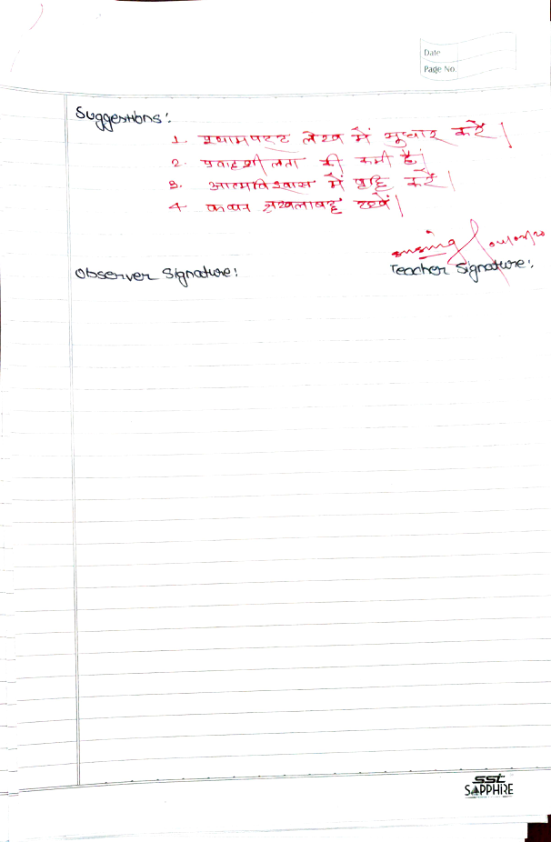 Date
Page No.
Suggestions:
1. श्यामपटट लेख में सुधार करें।
2. प्रवाहशीलता की कमी है।
3. आत्मविश्वास में वृद्धि करें।
4. श्रृंखलाबद्ध रखें।
Observer Signature:
Teacher Signature:
sst
SAPPHIRE